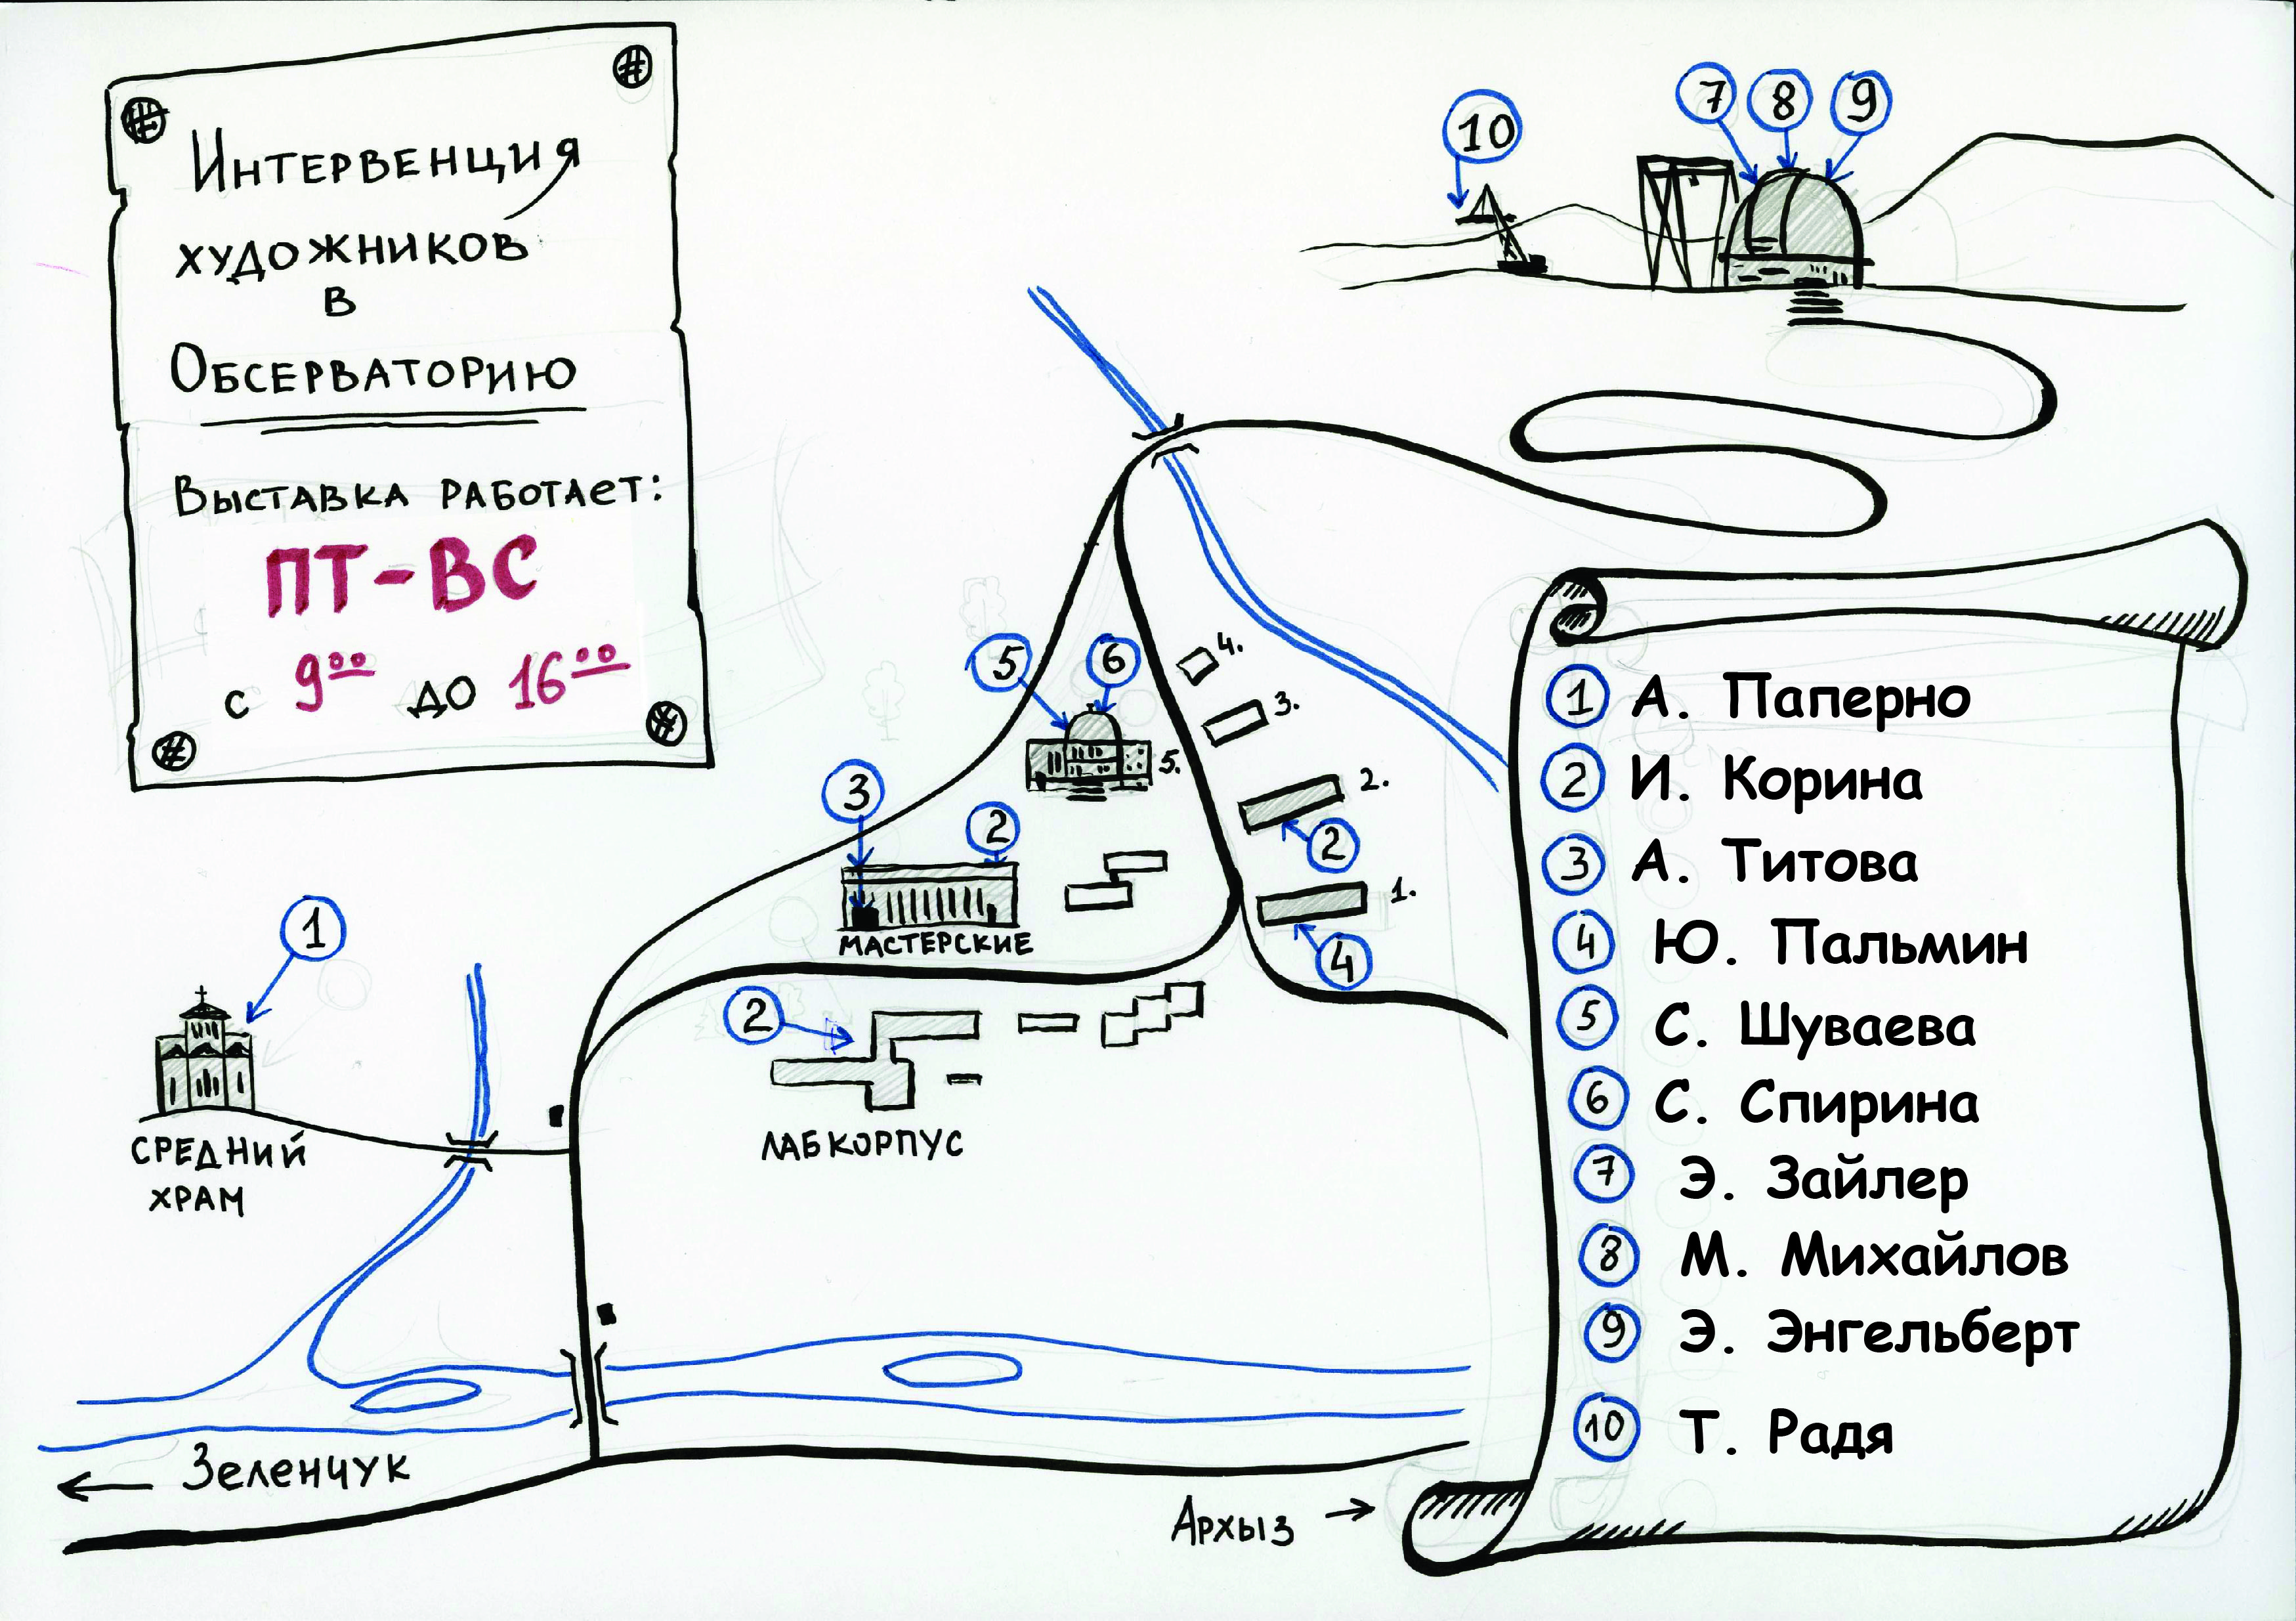 Интервенция
художников
в
Обсерваторию
Выставка работает:
ПТ-ВС
с 9⁰⁰ до 16⁰⁰
10
7 8 9
5
6
4.
3.
5.
2.
3
2
2
1.
4
МАСТЕРСКИЕ
1
2
СРЕДНИЙ
ХРАМ
ЛАБКОРПУС
← Зеленчук
Архыз →
1 А. Паперно
2 И. Корина
3 А. Титова
4 Ю. Пальмин
5 С. Шуваева
6 С. Спирина
7 Э. Зайлер
8 М. Михайлов
9 Э. Энгельберт
10 Т. Радя